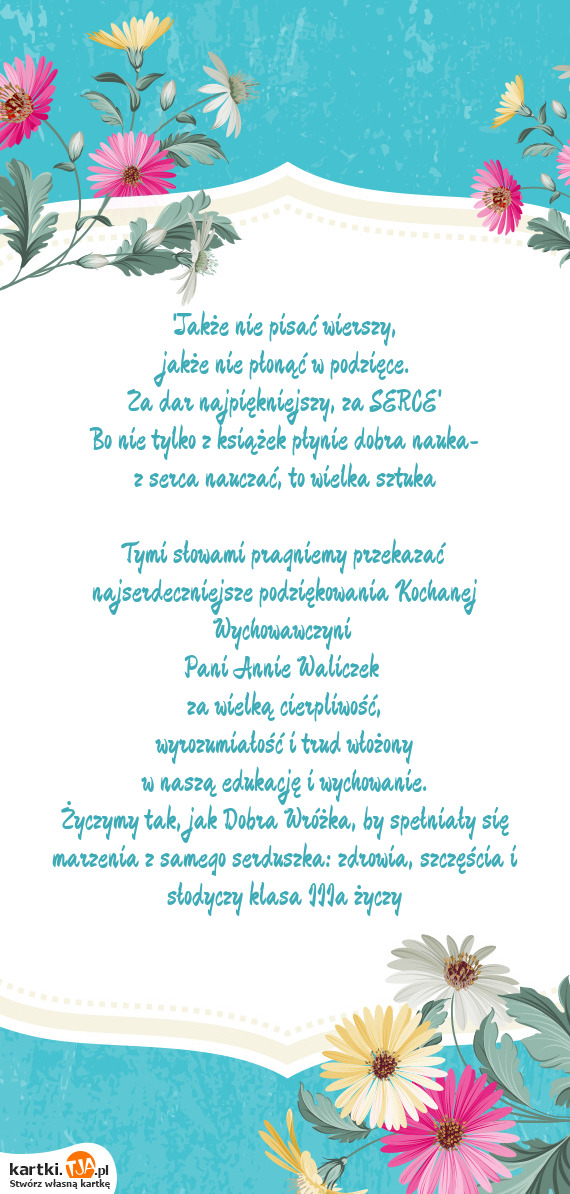 "Jakże nie pisać wierszy,
jakże nie płonąć w podzięce.
Za dar najpiękniejszy, za SERCE"
Bo nie tylko z książek płynie dobra nauka-
z serca nauczać, to wielka sztuka
Tymi słowami pragniemy przekazać
najserdeczniejsze podziękowania Kochanej
Wychowawczyni
Pani Annie Waliczek
za wielką cierpliwość,
wyrozumiałość i trud włożony
w naszą edukację i wychowanie.
Życzymy tak, jak Dobra Wróżka, by spełniały się
marzenia z samego serduszka: zdrowia, szczęścia i
słodyczy klasa IIIa życzy
kartki.TJA.pl
Stwórz własną kartkę